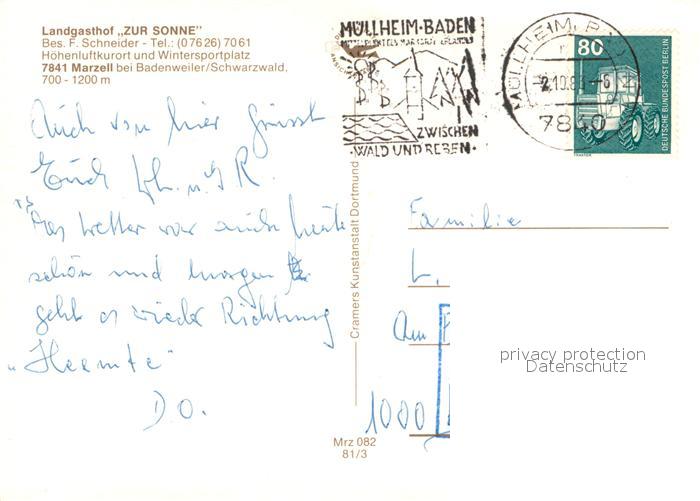 Landgasthof „ZUR SONNE"
Bes. F. Schneider - Tel.: (0 76 26) 70 61
Höhenluftkurort und Wintersportplatz
7841 Marzell bei Badenweiler/Schwarzwald,
700 - 1200 m
MÜLLHEIM·BADEN
ZWISCHEN
·WALD UND REBEN·
MÜLLHEIM,
7840
80
DEUTSCHE BUNDESPOST BERLIN
TRAKTOR
Auch von hier grüsst
Euch
Das Wetter war auch heute
schön und morgen
geht es wieder Richtung
„Heemte"
D.O.
Cramers Kunstanstalt Dortmund
Mrz 082
81/3
Familie
L.
Am
1000
privacy protection
Datenschutz